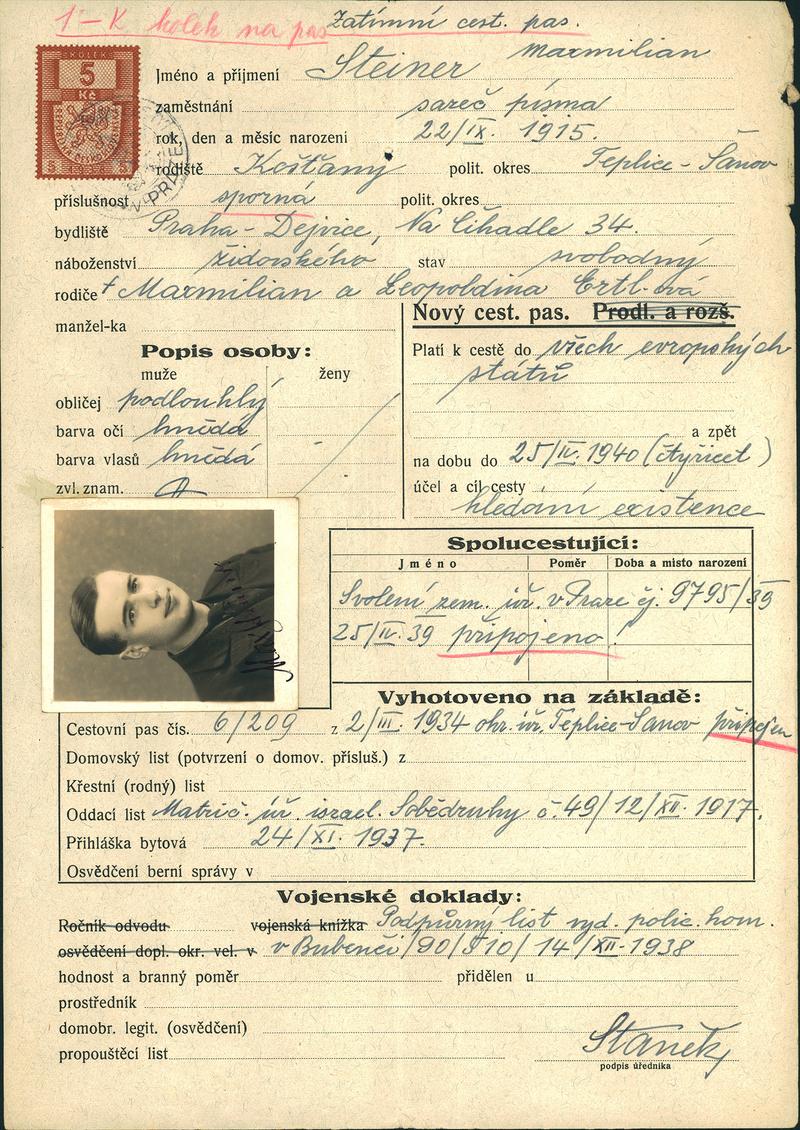 1- K kolek na pas
Zatímní cest. pas.
KOLEK
5
Kč
V PRAZE
Marmilian
Jméno a příjmení Steiner
zaměstnání sazeč písma
rok, den a měsíc narození 22/IX. 1915.
rodiště Košťany polit. okres Teplice-Šanov
příslušnost sporná polit. okres
bydliště Praha-Dejvice, Na Čihadle 34.
náboženství židovského stav svobodný
rodiče † Marmilian a Leopoldina Ertl-ová
manžel-ka
Nový cest. pas. Prodl. a rozš.
Popis osoby:
muže ženy
obličej podlouhlý
barva očí hnědá
barva vlasů hnědá
zvl. znam.
Platí k cestě do všech evropských
států
a zpět
na dobu do 25/IV. 1940 (čtyřicet)
účel a cíl cesty
hledání existence
Spolucestující:
Jméno Poměr Doba a misto narození
Svolení zem. úř. v Praze čj. 9795/39
25/IV. 39 připojeno!
Vyhotoveno na základě:
Cestovní pas čís. 6/209 z 2/III. 1934 okr. úř. Teplice-Šanov připojen
Domovský list (potvrzení o domov. přísluš.) z
Křestní (rodný) list
Oddací list Matrič. úř. israel. Sobědruhy č. 49/12/XII. 1917.
Přihláška bytová 24/XI. 1937.
Osvědčení berní správy v
Vojenské doklady:
Ročník odvodu vojenská knížka Podpůrný list vyd. polic. kom.
osvědčení dopl. okr. vel. v v Bubenči/90/810/14/XII-1938
hodnost a branný poměr přidělen u
prostředník
domobr. legit. (osvědčení)
propouštěcí list
Staněk
podpis úředníka